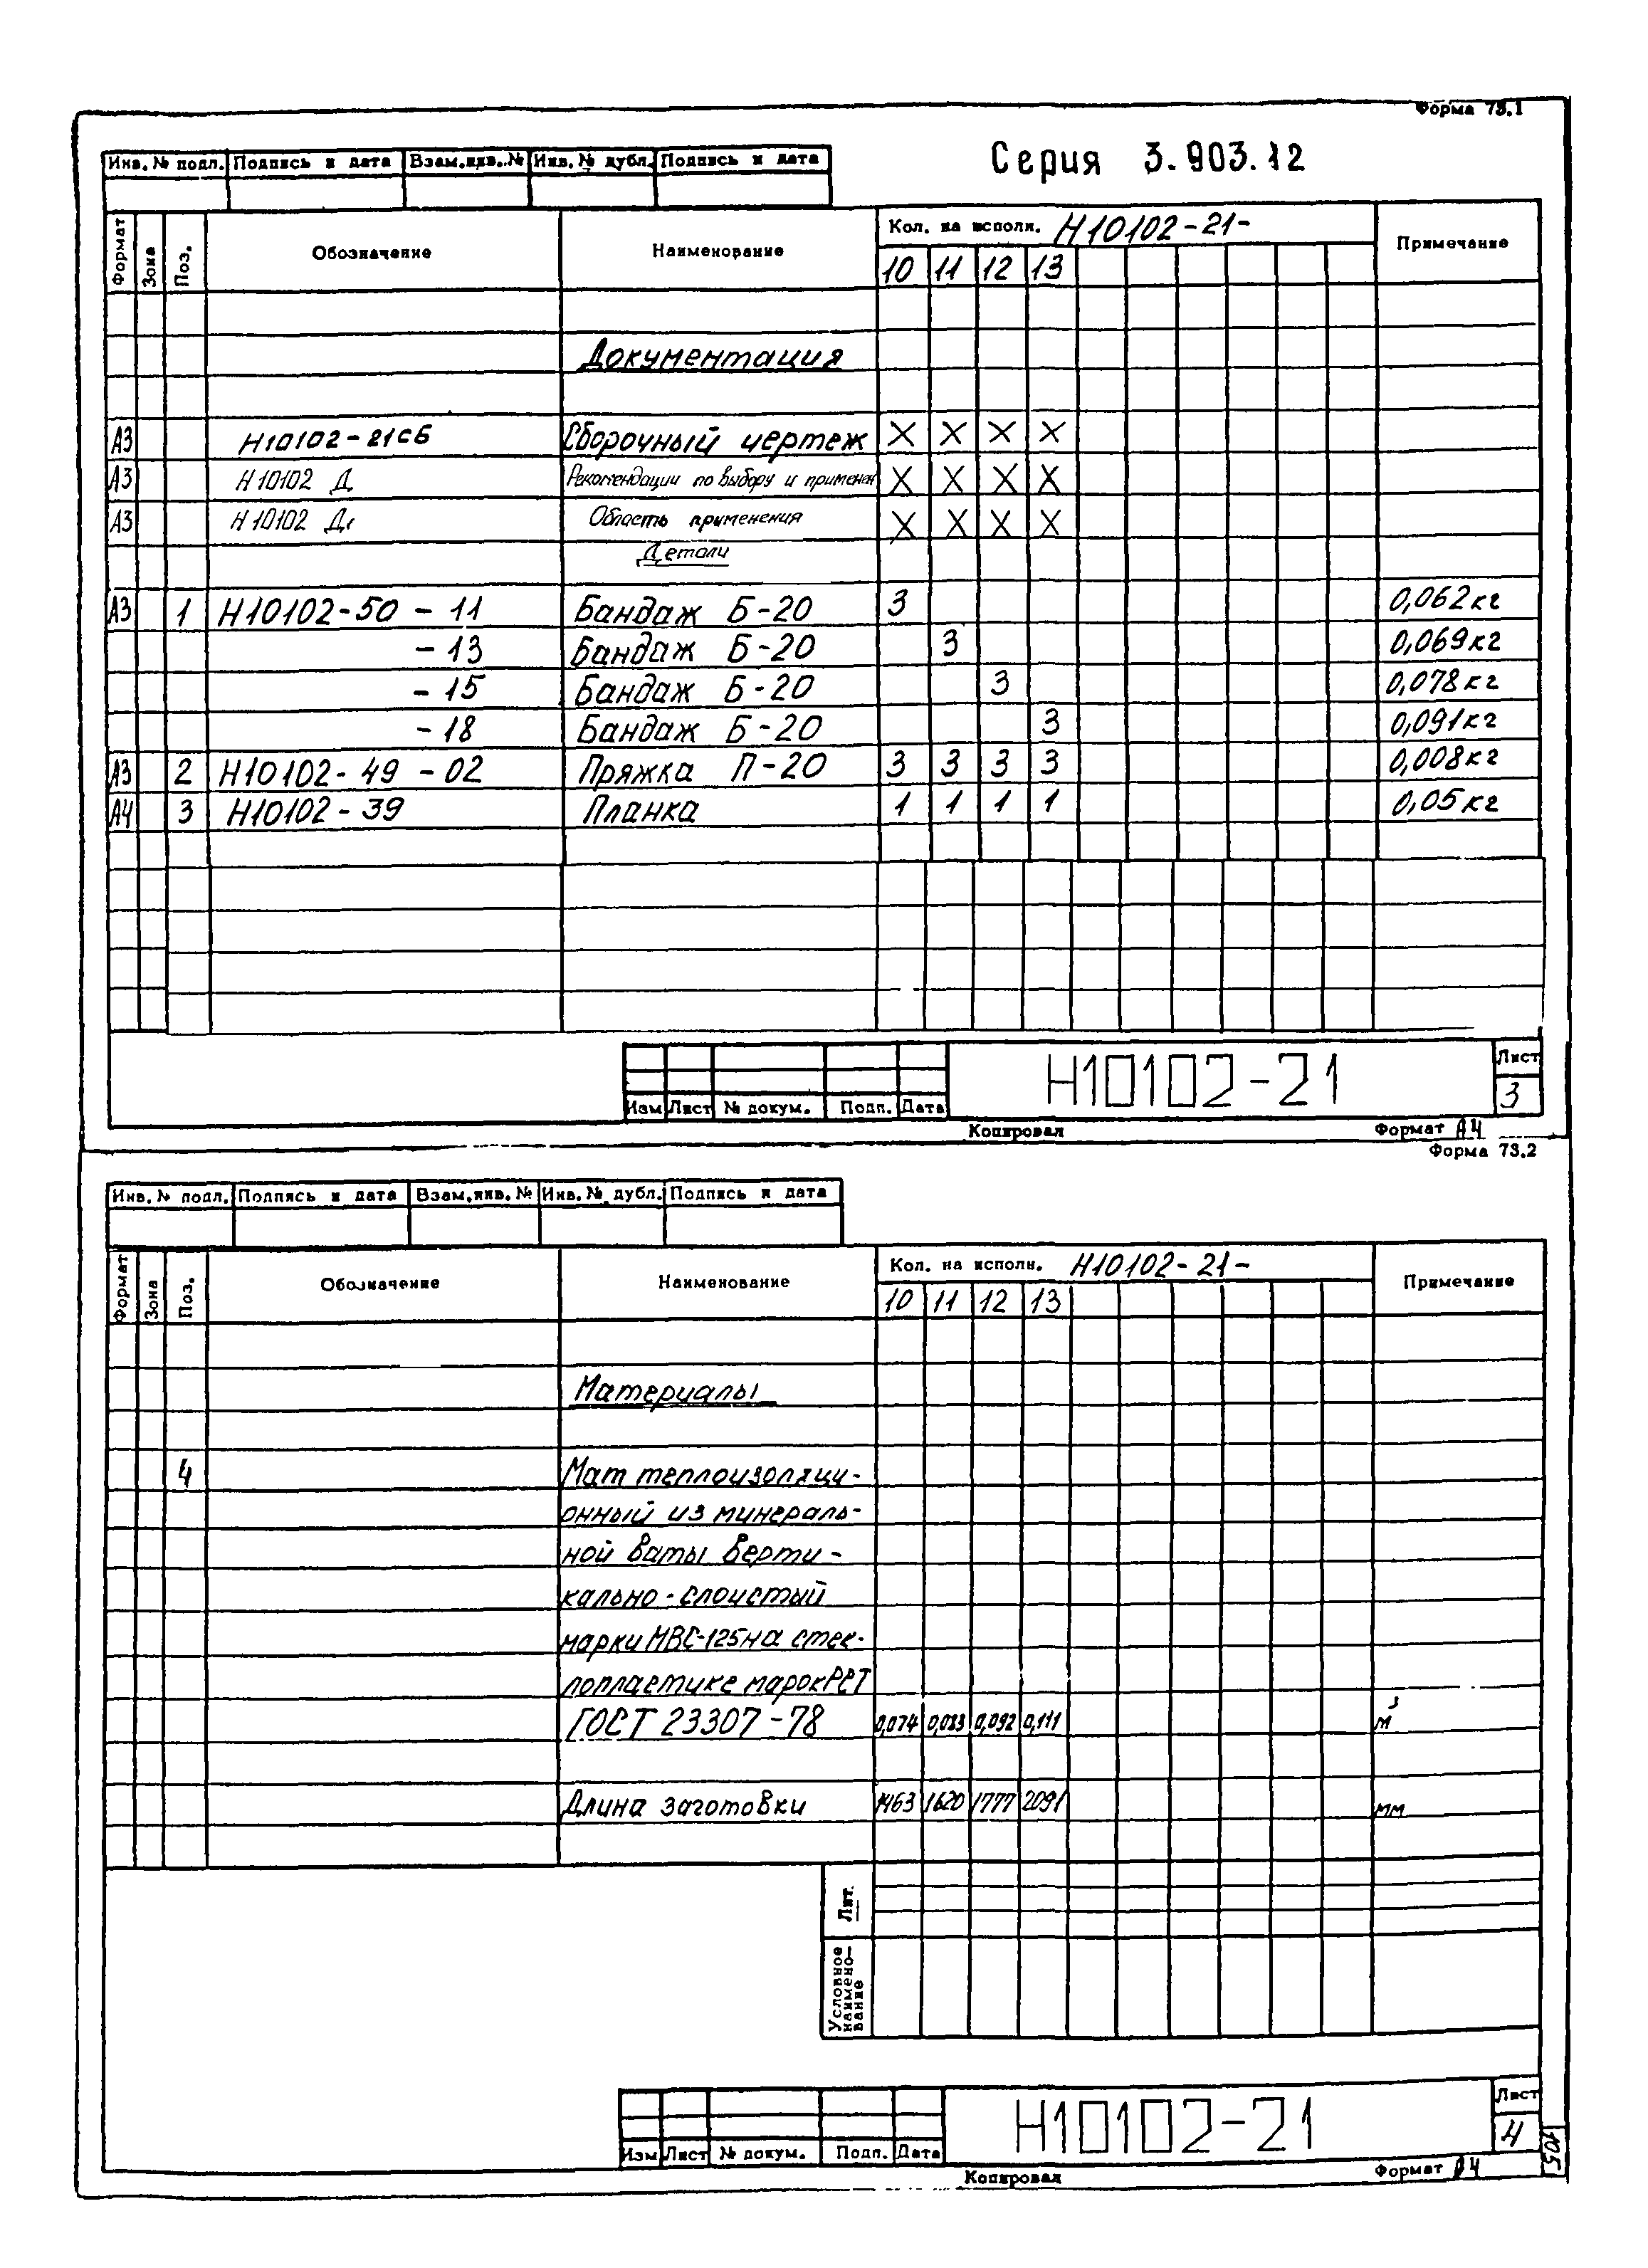 Форма 73.1
Серия 3.903.12
Инв. № подл. Подпись и дата Взам.инв.№ Инв. № дубл. Подпись и дата
Формат Зона Поз. Обозначение Наименование Кол. на исполн. Н10102-21- Примечание
10 11 12 13
Документация
А3 Н10102-21СБ Сборочный чертеж X X X X
А3 Н10102 Д Рекомендации по выбору и применен X X X X
А3 Н10102 Д1 Область применения X X X X
Детали
А3 1 Н10102-50 -11 Бандаж Б-20 3 0,062кг
-13 Бандаж Б-20 3 0,069кг
-15 Бандаж Б-20 3 0,078кг
-18 Бандаж Б-20 3 0,091кг
А3 2 Н10102-49 -02 Пряжка П-20 3 3 3 3 0,008кг
А4 3 Н10102-39 Планка 1 1 1 1 0,05кг
Изм Лист № докум. Подп. Дата Н10102-21 Лист 3
Копировал Формат А4
Форма 73.2
Инв. № подл. Подпись и дата Взам.инв. № Инв. № дубл. Подпись и дата
Формат Зона Поз. Обозначение Наименование Кол. на исполн. Н10102-21- Примечание
10 11 12 13
Материалы
4 Мат теплоизоляци-
онный из минераль-
ной ваты верти-
кально-слоистый
марки МВС-125 на стек-
лопластике марок РСТ
ГОСТ 23307-78 0,074 0,083 0,092 0,111 м³
Длина заготовки 1463 1620 1777 2091 мм
Лит.
Условное наимено-вание
Изм Лист № докум. Подп. Дата Н10102-21 Лист 4
Копировал Формат А4
105